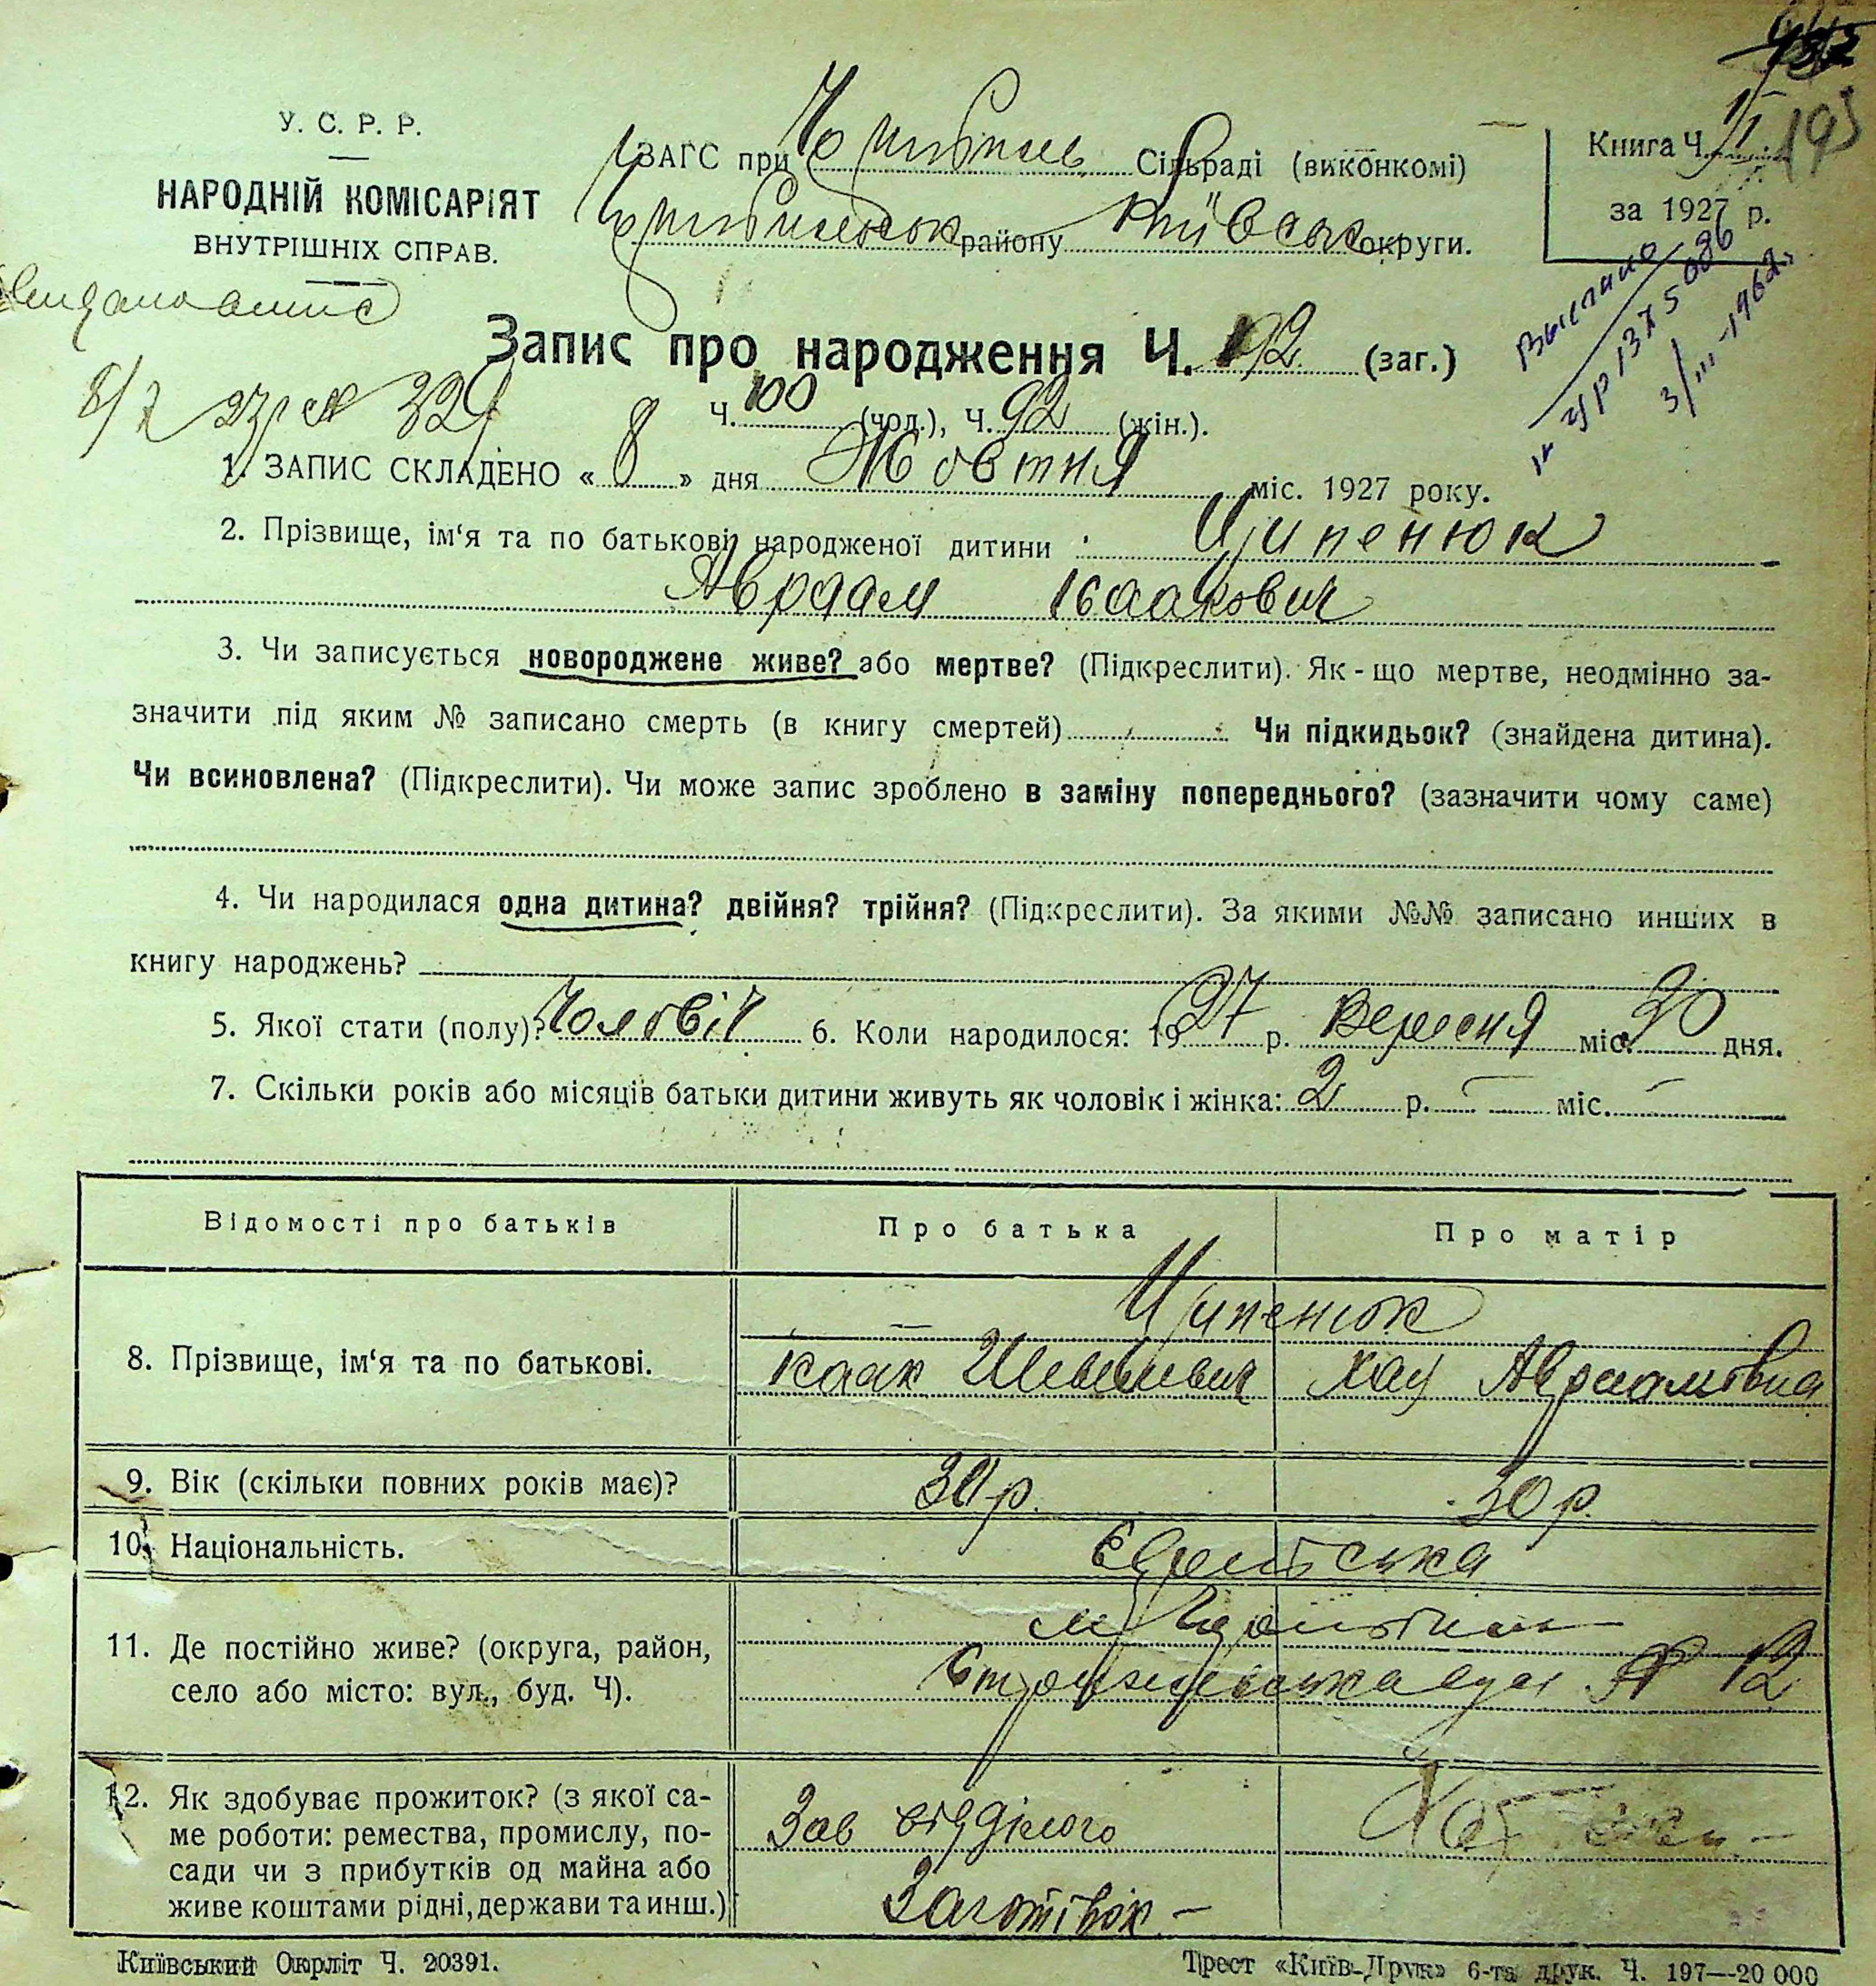 У. С. Р. Р.
НАРОДНІЙ КОМІСАРІЯТ
ВНУТРІШНІХ СПРАВ.
ЗАГС при Сільраді (виконкомі)
району Київськ округи.
Книга Ч.
193
за 1927 р.
Выслано
1375086
3/III-1962г
Запис про народження Ч. 192 (заг.)
8/X 27р № 329
Ч. 100 (чол.), Ч. 92 (жін.).
1. ЗАПИС СКЛАДЕНО « 8 » дня Жовтня міс. 1927 року.
2. Прізвище, ім‘я та по батькові народженої дитини Ципенюк
Авраам Ісаакович
3. Чи записується новороджене живе? або мертве? (Підкреслити). Як-що мертве, неодмінно за-
значити під яким № записано смерть (в книгу смертей) Чи підкидьок? (знайдена дитина).
Чи всиновлена? (Підкреслити). Чи може запис зроблено в заміну попереднього? (зазначити чому саме)
4. Чи народилася одна дитина? двійня? трійня? (Підкреслити). За якими №№ записано инших в
книгу народжень?
5. Якої стати (полу)? Чоловіч 6. Коли народилося: 1927 р. Вересня міс. 30 дня.
7. Скільки років або місяців батьки дитини живуть як чоловік і жінка: 2 р. — міс. —
Відомості про батьків Про батька Про матір
Ципенюк
8. Прізвище, ім‘я та по батькові. Ісаак Хая Авраамівна
9. Вік (скільки повних років має)? р. 30 р.
10. Національність. Єврейська
11. Де постійно живе? (округа, район,
село або місто: вул., буд. Ч). вул № 12
12. Як здобуває прожиток? (з якої са-
ме роботи: ремества, промислу, по-
сади чи з прибутків од майна або
живе коштами рідні, держави та инш.)
Зав відділого
Заготівок —
Київський Окрліт Ч. 20391.
Трест «Київ-Друк» 6-та друк. Ч. 197—20 000